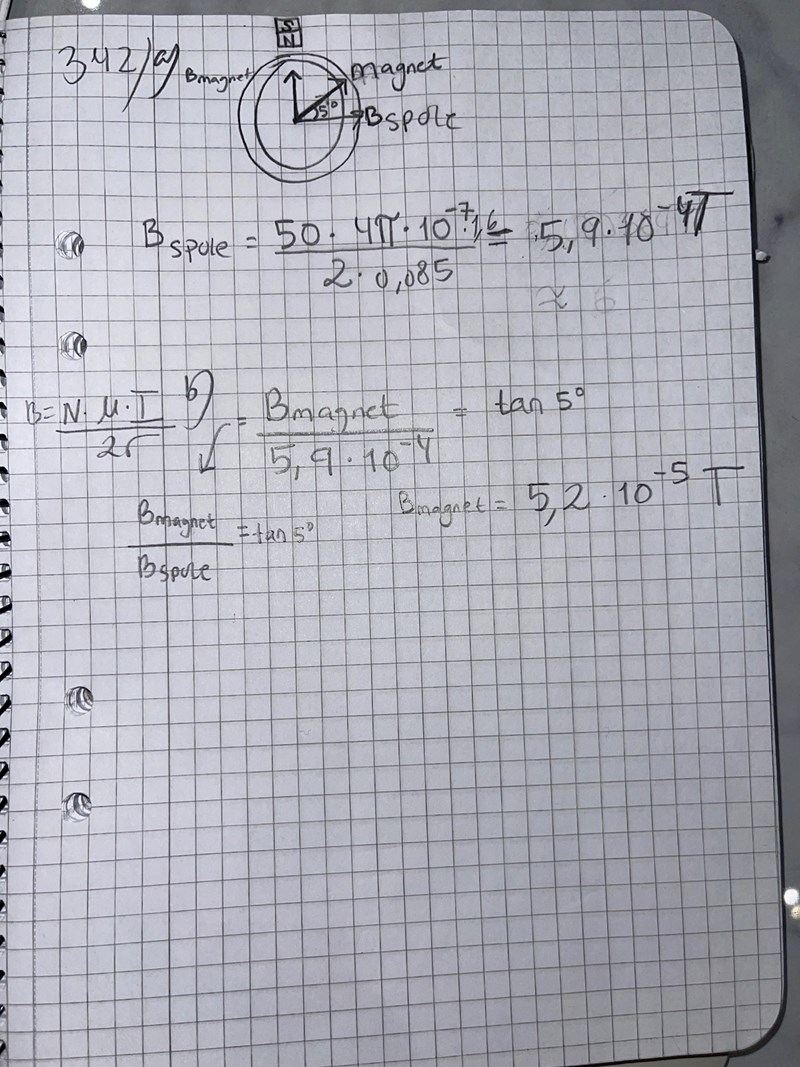 342/a)
S
N
Bmagnet
magnet
5°
Bspole
Bspole = 50 · 4π · 10⁻⁷ · 1,6 / 2 · 0,085 = 5,9 · 10⁻⁴ T
≈ 6
B = N · μ · I / 2r
b)
= Bmagnet / 5,9 · 10⁻⁴ = tan 5°
Bmagnet / Bspole = tan 5°
Bmagnet = 5,2 · 10⁻⁵ T